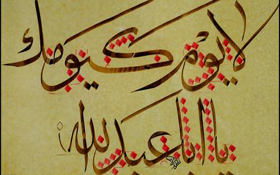 لا يَوْمَ كَيَوْمِكَ
يا أبا عبد الله